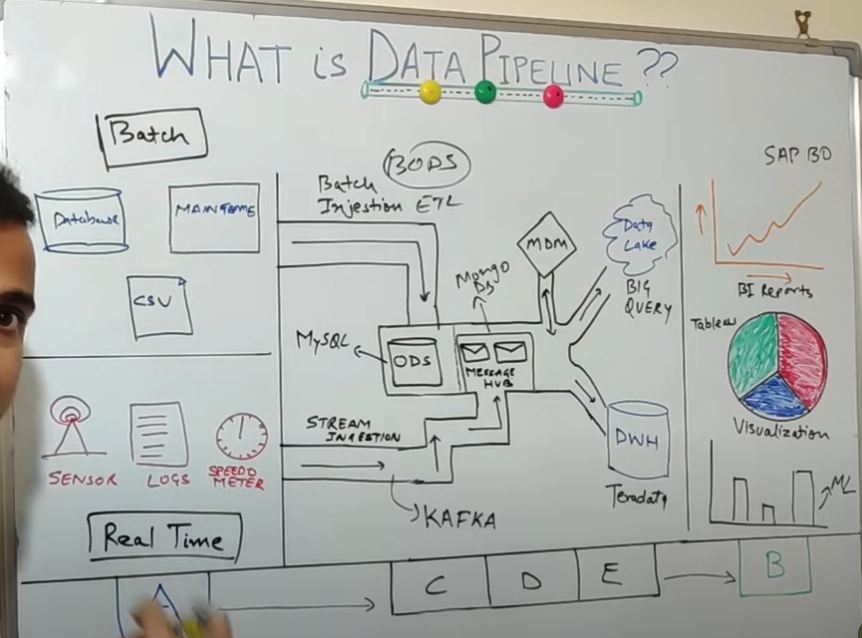 WHAT is DATA PIPELINE ??
Batch
Database
MAINFRAME
CSV
SENSOR
LOGS
SPEEDO
METER
Real Time
BODS
Batch
Injestion ETL
MySQL
ODS
Mongo
DB
MESSAGE
HUB
STREAM
INGESTION
KAFKA
MDM
Data
Lake
BIG
QUERY
DWH
Teradata
SAP BO
BI Reports
Tableau
Visualization
ML
A
C
D
E
B